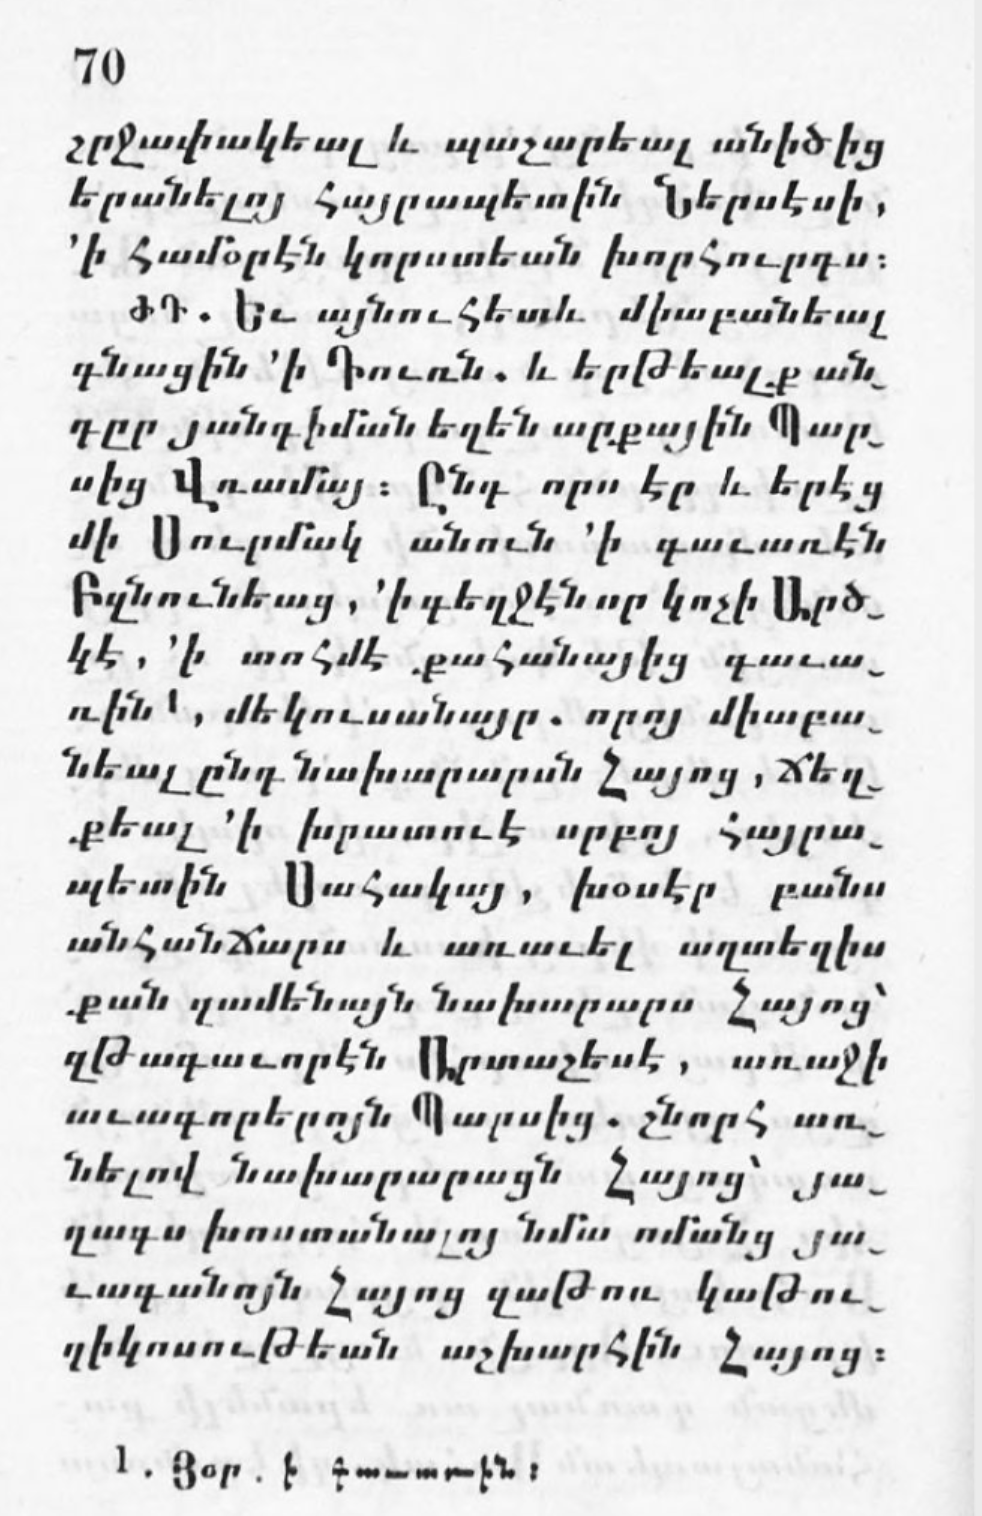 70
շրջափակեալ և պաշարեալ անիծից
երանելոյ Հայրապետին Ներսէսի,
՚ի համօրէն կորստեան խորհուրդս։
ԺԴ. Եւ այնուհետև միաբանեալ
գնացին ՚ի Դուռն. և երթեալք ան֊
դըր յանդիման եղեն արքային Պար֊
սից Վռամայ։ Ընդ որս էր և երէց
մի Սուրմակ անուն ՚ի գաւառէն
Բզնունեաց, ՚ի գեղջէն որ կոչի Արծ֊
կէ, ՚ի տոհմէ քահանայից գաւա֊
ռին¹, մեկուսանայր. որոյ միաբա֊
նեալ ընդ նախարարսն Հայոց, ճեղ֊
քեալ ՚ի խրատուէ սրբոյ հայրա֊
պետին Սահակայ, խօսէր բանս
անհանճարս և առաւել աղտեղիս
քան զամենայն նախարարս Հայոց՝
զթագաւորէն Արտաշեսէ, առաջի
աւագորերոյն Պարսից. շնորհ առ֊
նելով նախարարացն Հայոց՝ յա֊
ղագս խոստանալոյ նմա ոմանց յա֊
ւագանոյն Հայոց զաթոռ կաթու֊
ղիկոսութեան աշխարհին Հայոց։
1. Յօր. ի գաւառին։